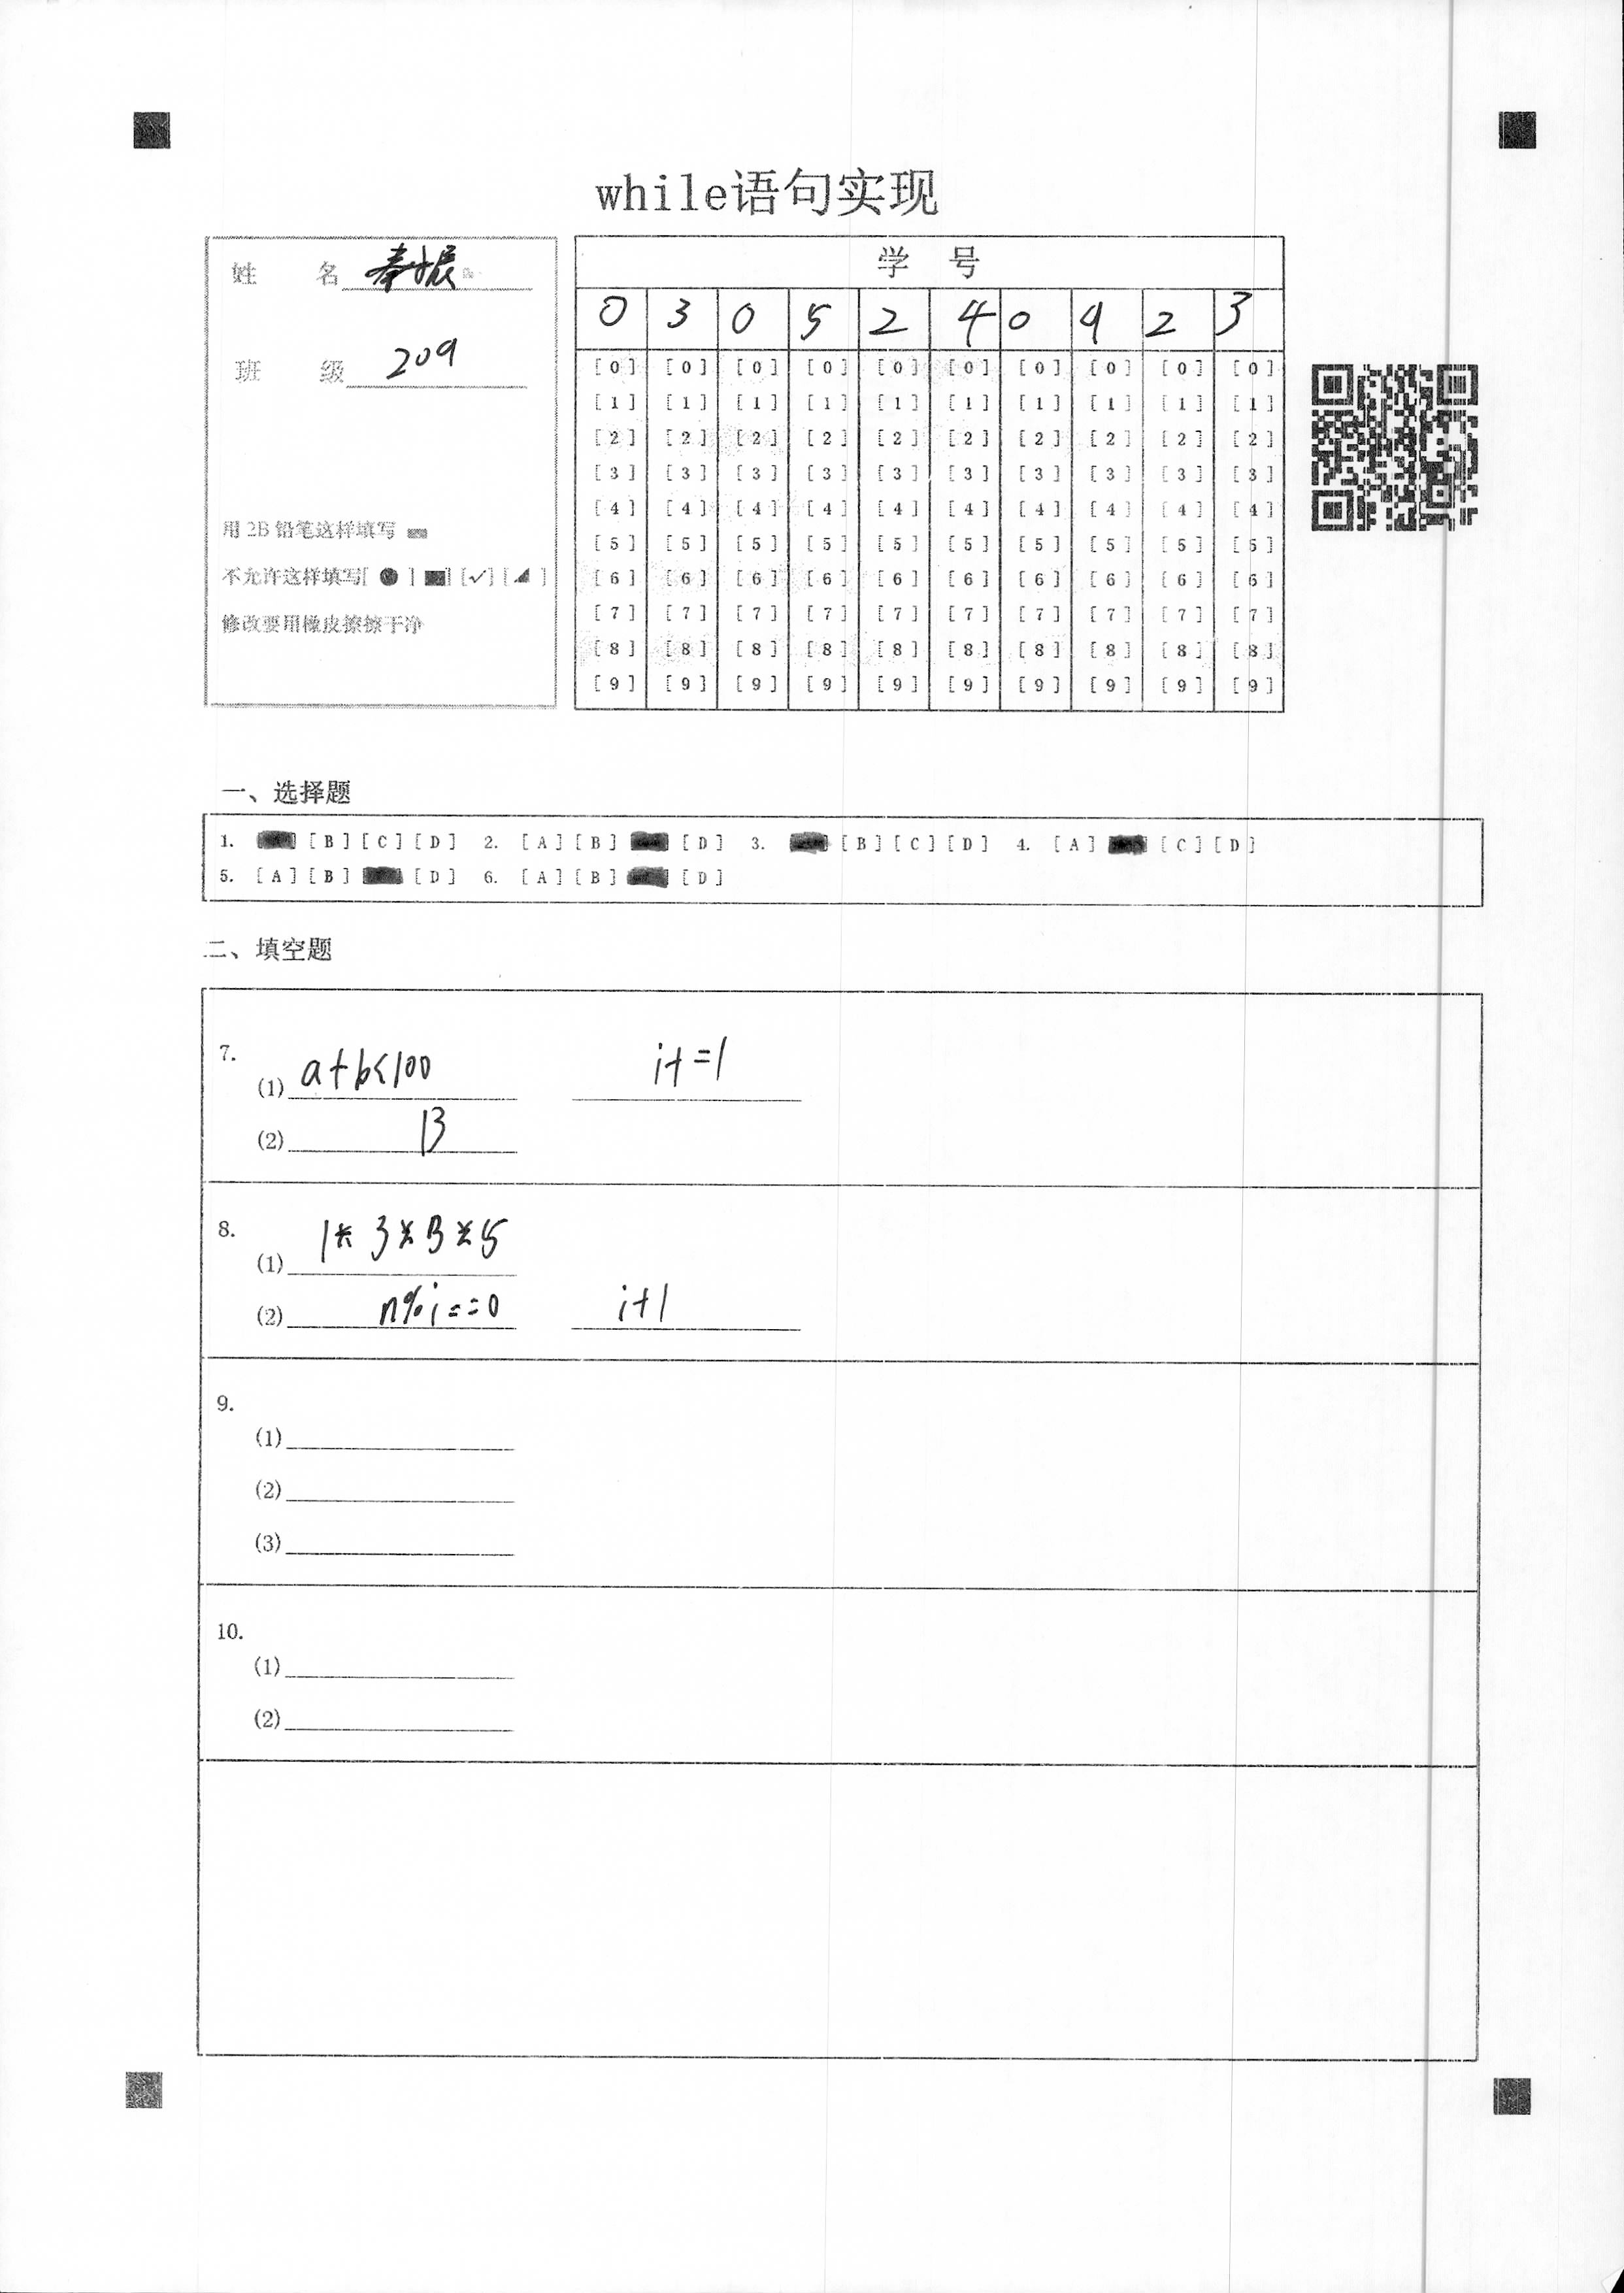 while语句实现
姓 名 秦振
班 级 209
用 2B 铅笔这样填写
不允许这样填写[ ● ] [✓] [ ]
修改要用橡皮擦擦干净
学 号
0 3 0 5 2 4 0 9 2 3
[0] [0] [0] [0] [0] [0] [0] [0] [0] [0]
[1] [1] [1] [1] [1] [1] [1] [1] [1] [1]
[2] [2] [2] [2] [2] [2] [2] [2] [2] [2]
[3] [3] [3] [3] [3] [3] [3] [3] [3] [3]
[4] [4] [4] [4] [4] [4] [4] [4] [4] [4]
[5] [5] [5] [5] [5] [5] [5] [5] [5] [5]
[6] [6] [6] [6] [6] [6] [6] [6] [6] [6]
[7] [7] [7] [7] [7] [7] [7] [7] [7] [7]
[8] [8] [8] [8] [8] [8] [8] [8] [8] [8]
[9] [9] [9] [9] [9] [9] [9] [9] [9] [9]
一、选择题
1. [B] [C] [D] 2. [A] [B] [D] 3. [B] [C] [D] 4. [A] [C] [D]
5. [A] [B] [D] 6. [A] [B] [D]
二、填空题
7.
(1) a+b<100 i+=1
(2) B
8.
(1) 1* 3*3*5
(2) n%i==0 i+1
9.
(1)
(2)
(3)
10.
(1)
(2)